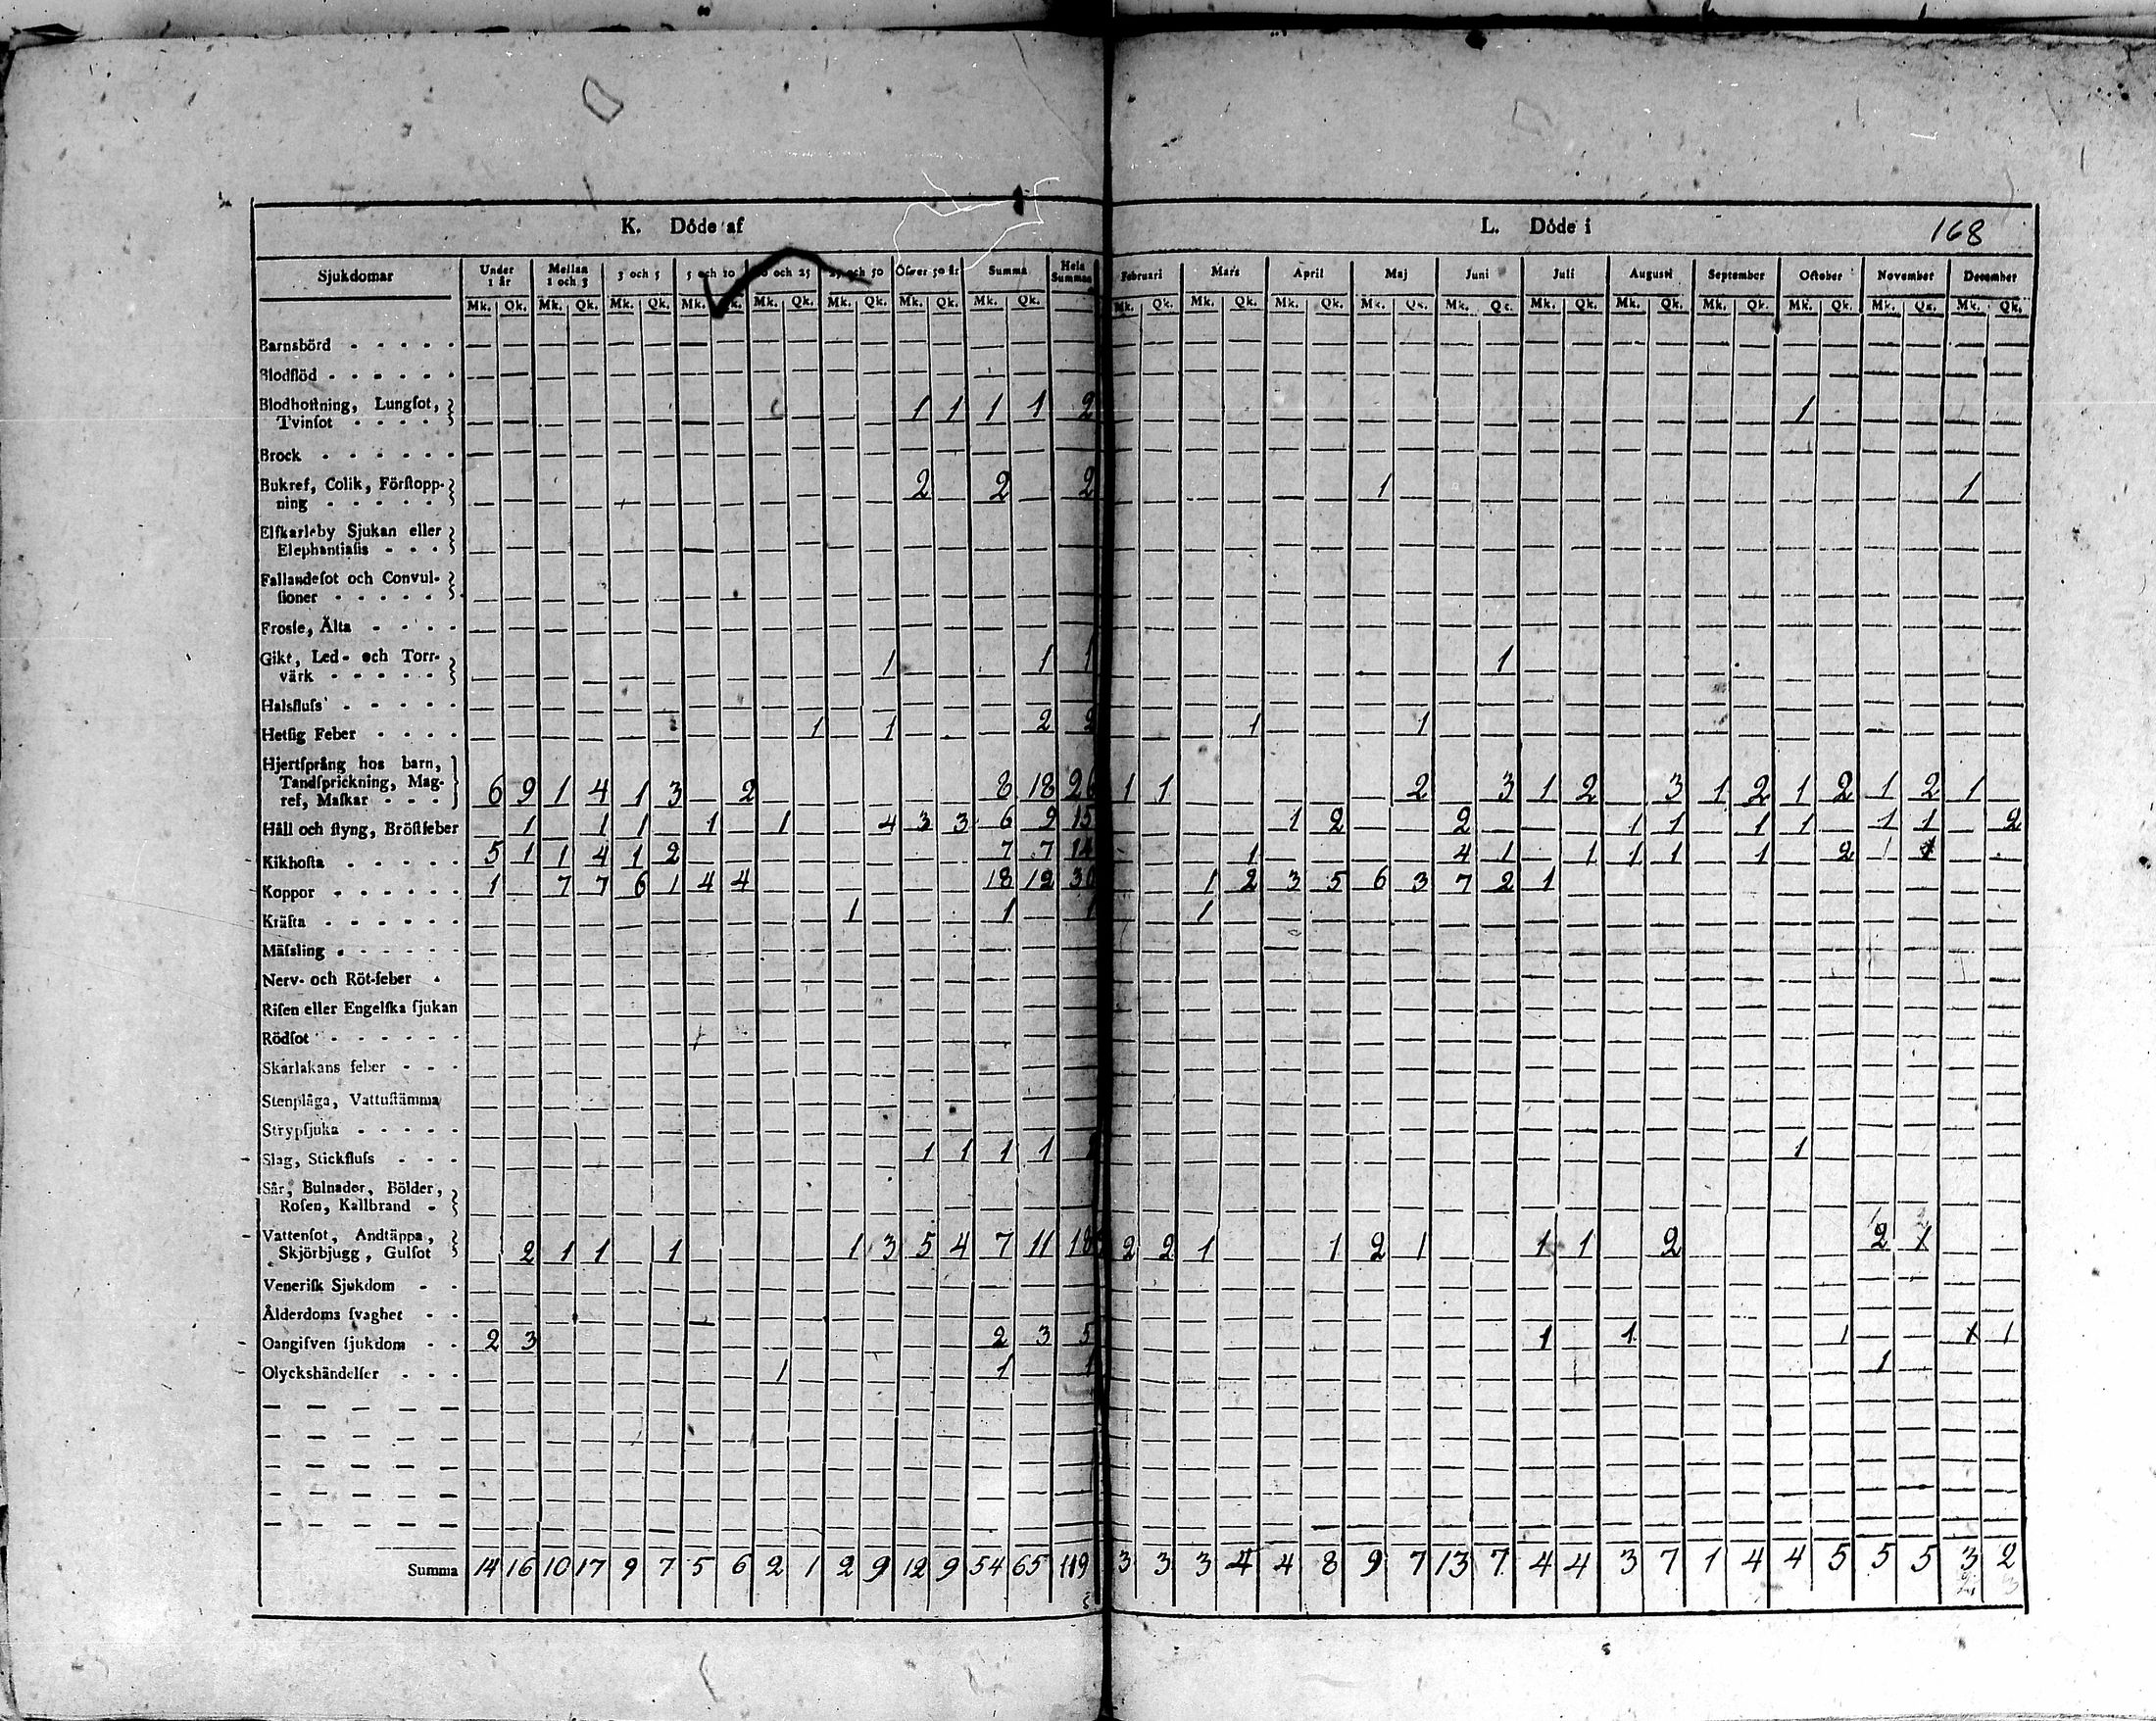 K. Döde af L. Döde i 168
Sjukdomar Under 1 år Mellan 1 och 3 3 och 5 5 och 10 och 25 och 50 Öfver 50 år Summa Hela Summan Februari Mars April Maj Juni Juli Augusti September October November December
Mk. Qk. Mk. Qk. Mk. Qk. Mk. Qk. Mk. Qk. Mk. Qk. Mk. Qk. Mk. Qk. Mk. Qk. Mk. Qk. Mk. Qk. Mk. Qk. Mk. Qk. Mk. Qk. Mk. Qk. Mk. Qk. Mk. Qk. Mk. Qk. Mk. Qk.
Barnsbörd
Blodflöd
Blodhoſtning, Lungſot,
Tvinſot 1 1 1 1 2 1
Brock
Bukref, Colik, Förſtopp-
ning 2 2 2 1 1
Elfkarleby Sjukan eller
Elephantiaſis
Fallandeſot och Convul-
ſioner
Froſſe, Älta
Gikt, Led- och Torr-
värk 1 1 1 1
Halsfluſs
Hetſig Feber 1 1 2 2 1 1
Hjertſprång hos barn,
Tandſprickning, Mag-
ref, Maſkar 6 9 1 4 1 3 2 8 18 26 1 1 2 3 1 2 3 1 2 1 2 1 2 1
Håll och ſtyng, Bröſtfeber 1 1 1 1 1 4 3 3 6 9 15 1 2 2 1 1 1 1 1 1 2
Kikhoſta 5 1 1 4 1 2 7 7 14 1 4 1 1 1 1 1 2 1 1
Koppor 1 7 7 6 1 4 4 18 12 30 1 2 3 5 6 3 7 2 1
Kräfta 1 1 1 1
Mäſsling
Nerv- och Röt-feber
Riſen eller Engelſka ſjukan
Rödſot
Skarlakans feber
Stenplåga, Vattuſtämma
Strypſjuka
Slag, Stickfluſs 1 1 1 1 1
Sår, Bulnader, Bölder,
Roſen, Kallbrand
Vattenſot, Andtäppa,
Skjörbjugg, Gulſot 2 1 1 1 1 3 5 4 7 11 18 2 2 1 1 2 1 1 1 2 2 1
Veneriſk Sjukdom
Ålderdoms ſvaghet
Oangifven ſjukdom 2 3 2 3 5 1 1 1 1 1
Olyckshändelſer 1 1 1 1
Summa 14 16 10 17 9 7 5 6 2 1 2 9 12 9 54 65 119 3 3 3 4 4 8 9 7 13 7 4 4 3 7 1 4 4 5 5 5 3 2
2 3